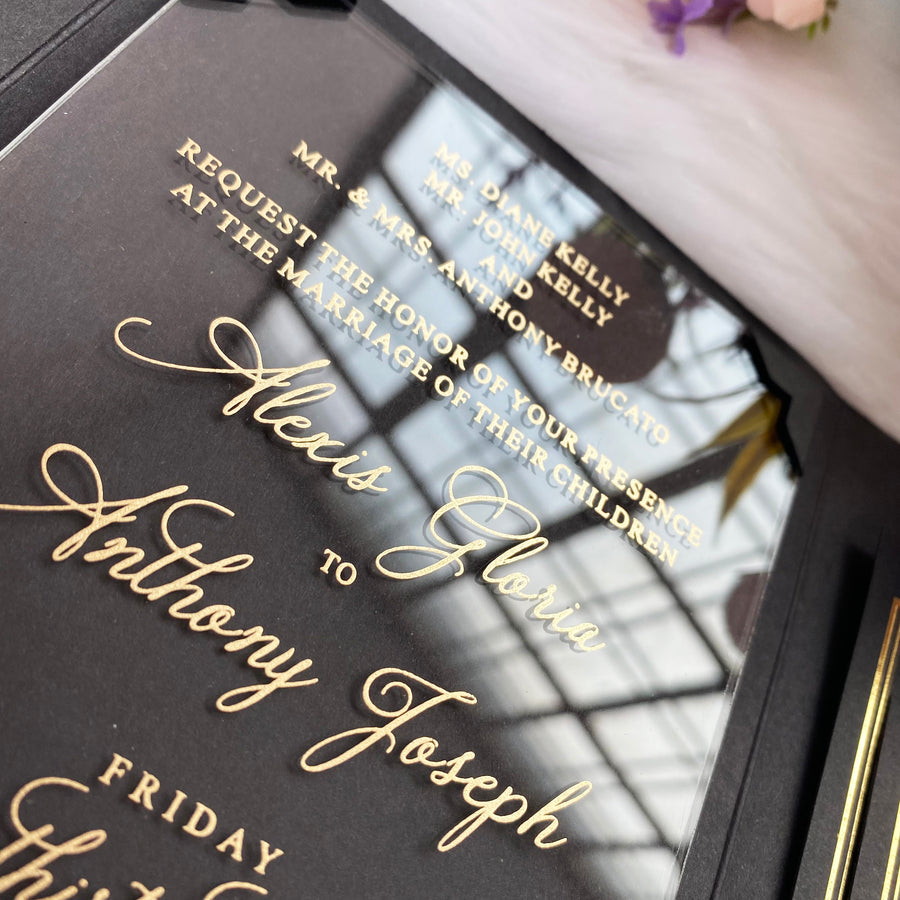 MS. DIANE KELLY
MR. JOHN KELLY
AND
MR. & MRS. ANTHONY BRUCATO
REQUEST THE HONOR OF YOUR PRESENCE
AT THE MARRIAGE OF THEIR CHILDREN
Alexis Gloria
TO
Anthony Joseph
FRIDAY